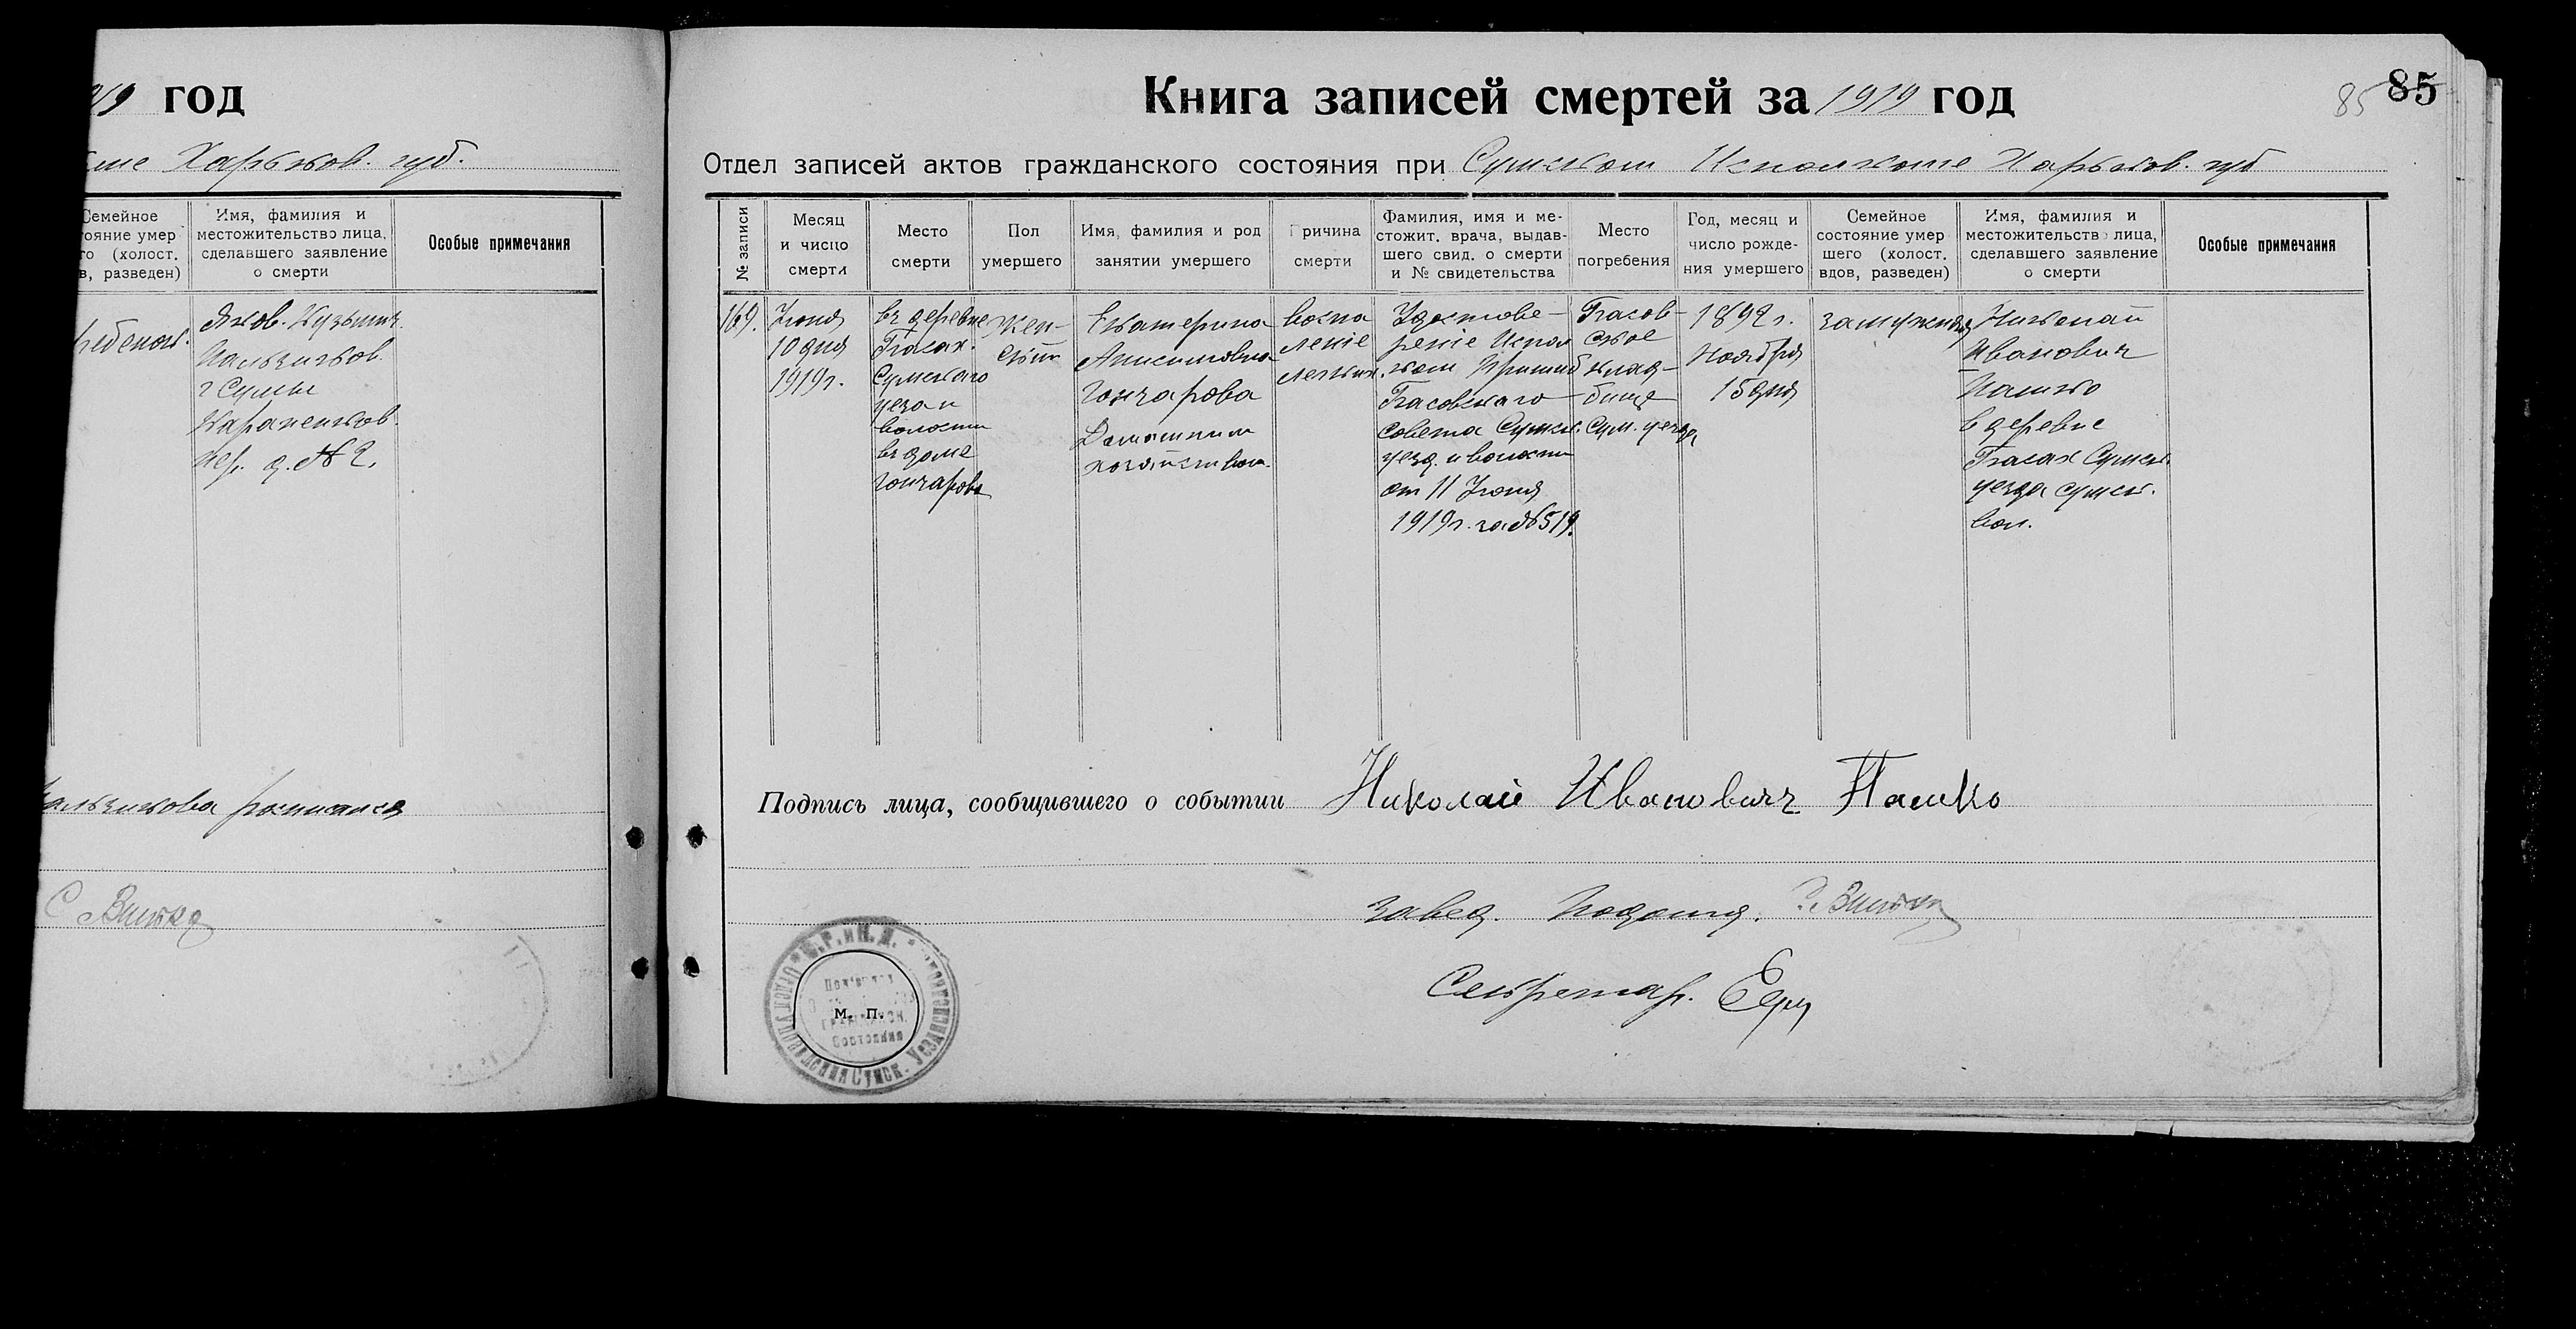 19 год
Харьков. губ.
Семейное
тояние умер
го (холост.
в, разведен)
Имя, фамилия и
местожительство лица,
сделавшего заявление
о смерти
Особые примечания
Яков. Кузьмич
г Сумы
пер. д. № 2.
расписался
Книга записей смертей за 1919 год
85 85
Отдел записей актов гражданского состояния при Сумском Исполкоме Харьков. губ
№ записи
Месяц
и число
смерти
Место
смерти
Пол
умершего
Имя, фамилия и род
занятии умершего
Причина
смерти
Фамилия, имя и ме-
стожит. врача, выдав-
шего свид. о смерти
и № свидетельства
Место
погребения
Год, месяц и
число рожде-
ния умершего
Семейное
состояние умер
шего (холост.
вдов, разведен)
Имя, фамилия и
местожительство лица,
сделавшего заявление
о смерти
Особые примечания
169.
Іюня
10 дня
1919 г.
въ деревне
Басах.
Сумскаго
уезда и
волости
въ доме
Гончарова
Жен-
скій
Екатерина
Анисимовна
Гончарова
Домашним
хозяйством.
воспа
леніе
легких.
Удостове-
реніе Испол
ком
Басовскаго
совета Сумск.
уезд. и волости
от 11 Іюня
1919 г. за № 519.
Басов-
ское
клад-
бище
Сум. уезда
1892 г.
Ноября
15 дня
замужняя
Николай
Иванович
Пашко
в деревне
Басах Сумск.
уезда Сумск.
вол.
Подпись лица, сообщившего о событии Николай Иванович Пашко
Завед. Подотд.
Секретар.
М. П.